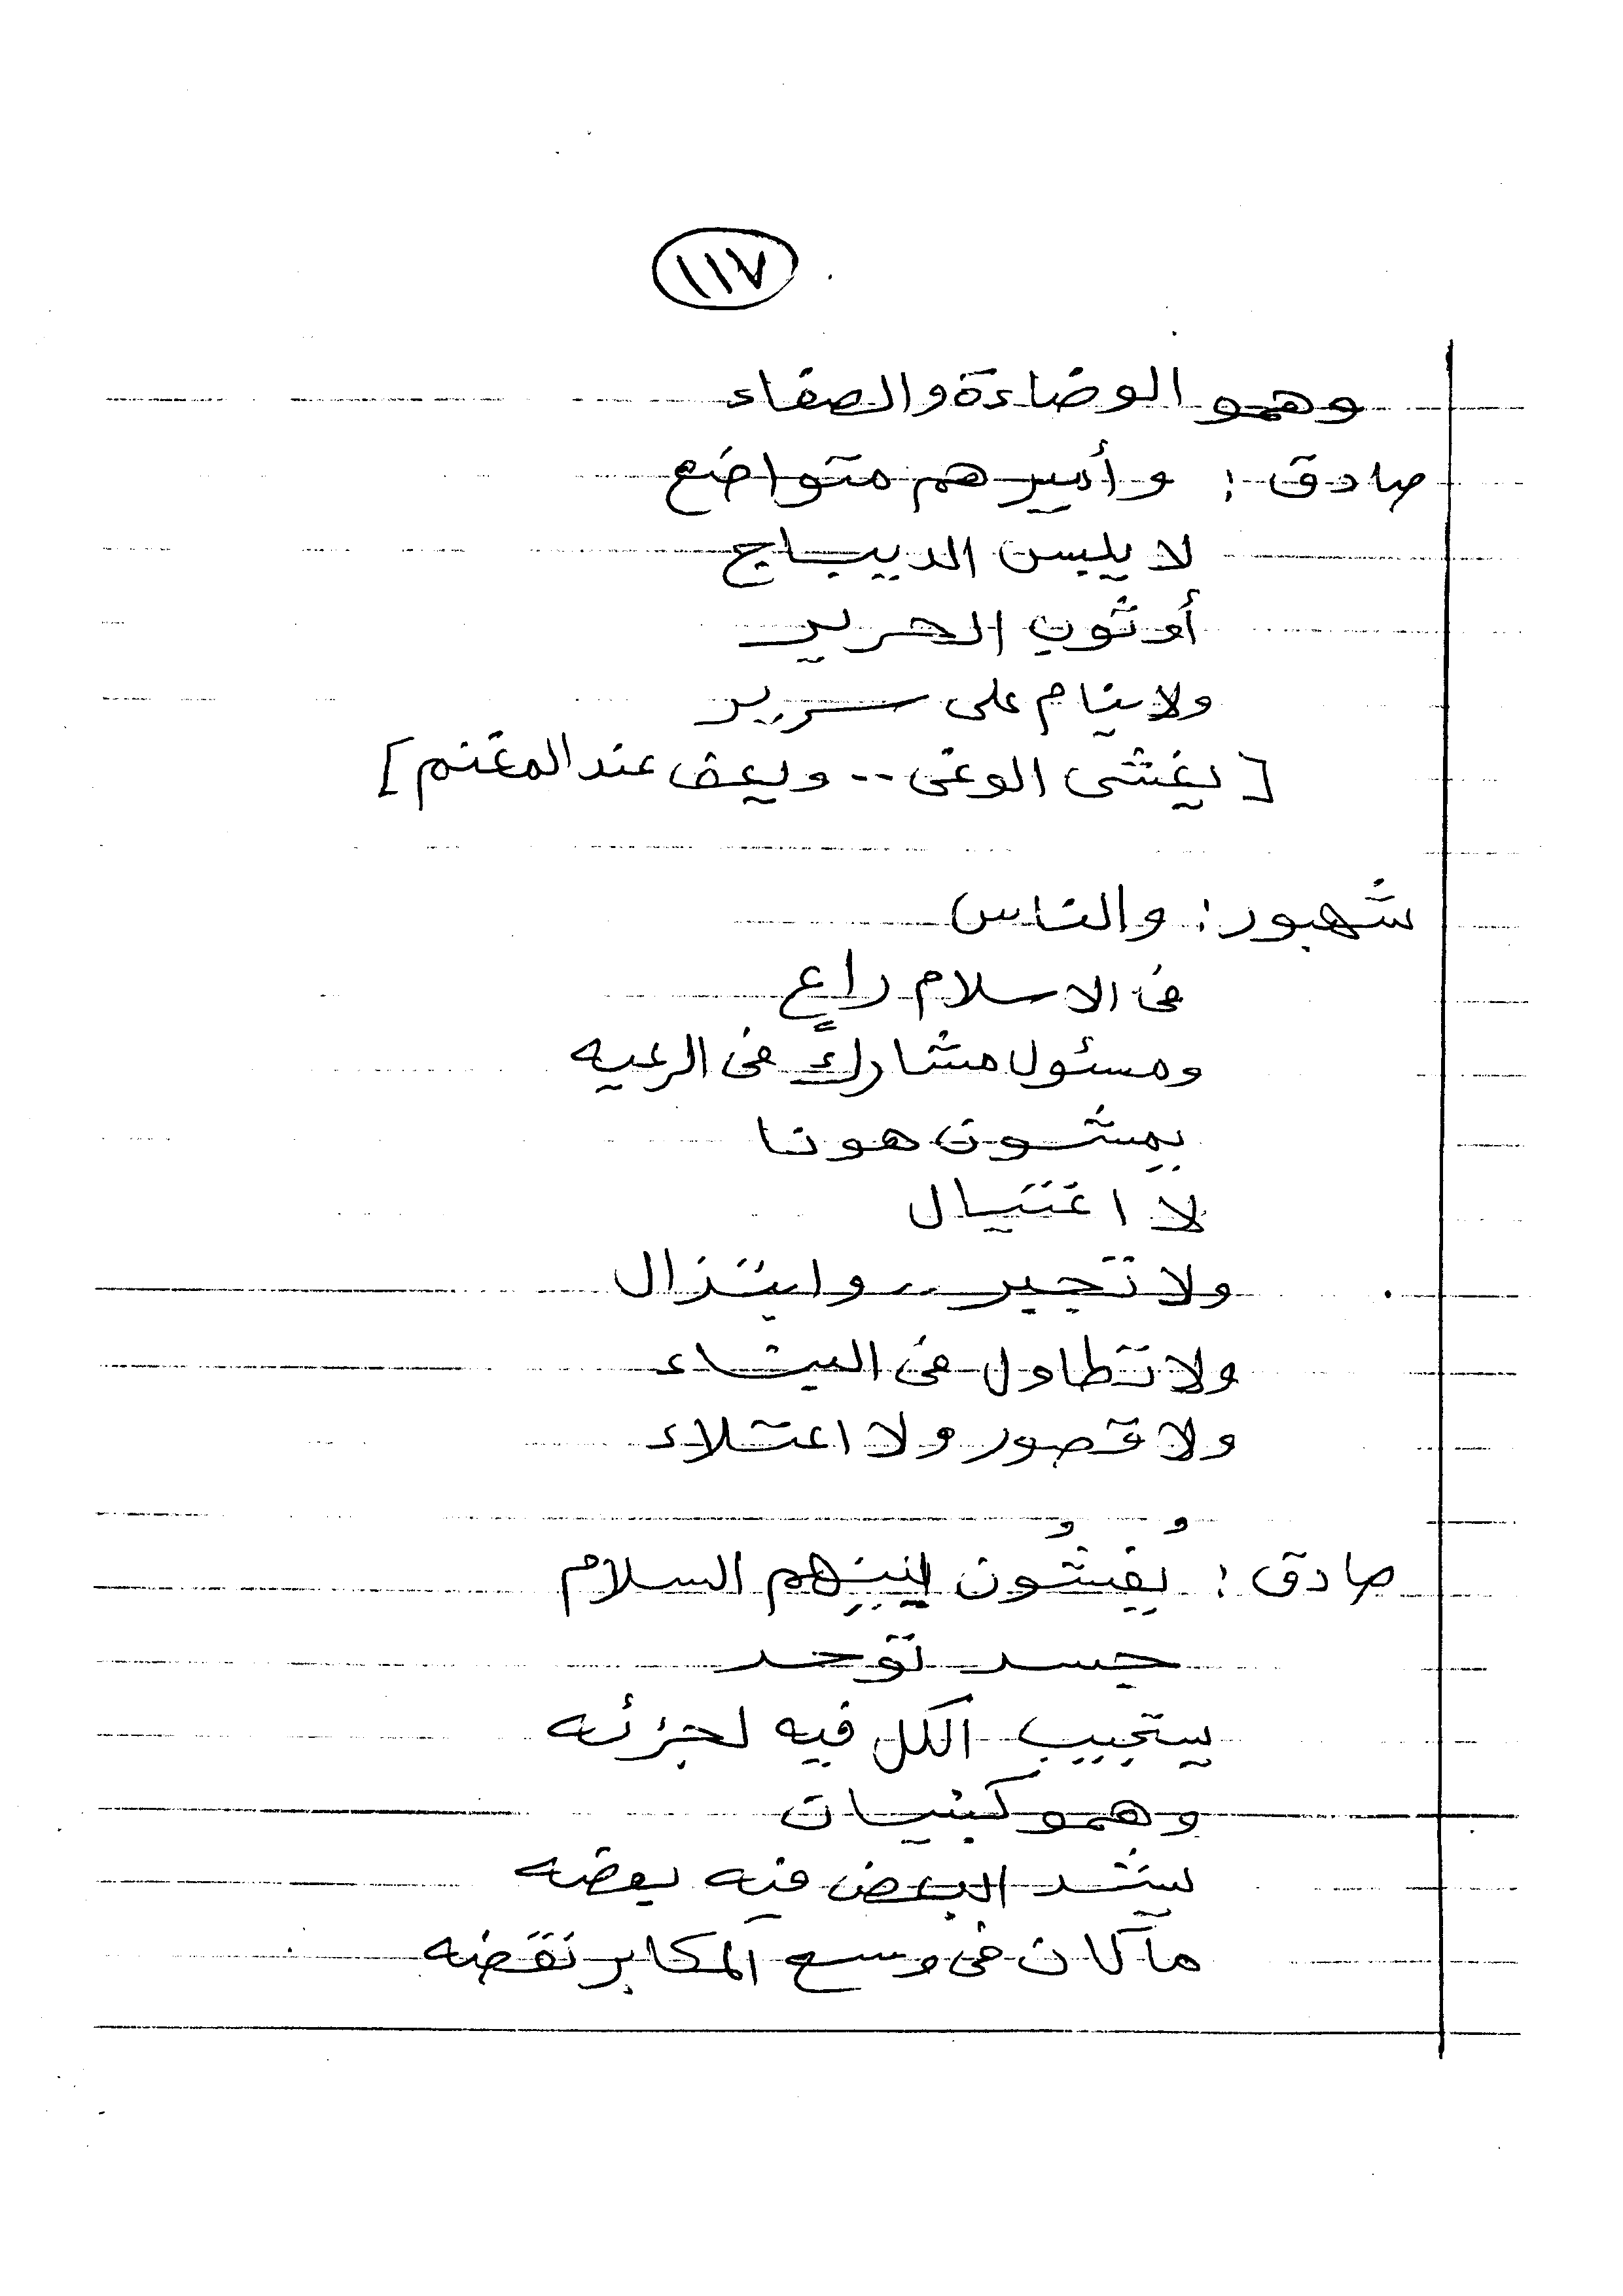 ١١٧
وهمو الوضاءة والصفاء
صادق : وأميرهم متواضع
لا يلبس الديباج
أو ثوب الحرير
ولا ينام على سرير
[ يغشى الوغى .. ويعف عند المغنم ]
شهبور : والناس
فى الاسلام راعٍ
ومسئول مشارك فى الرعيه
يمشون هونا
لا اغتيال
ولا تجبر .. وابتزال
ولا تطاول فى البناء
ولا قصور ولا اعتلاء
صادق : يُفشُون بينهم السلام
جسد توحد
يستجيب الكل فيه لجزئه
وهمو كبنيان
يشد البعض فيه بعضه
ما كان فى وسع المكابر نقضه